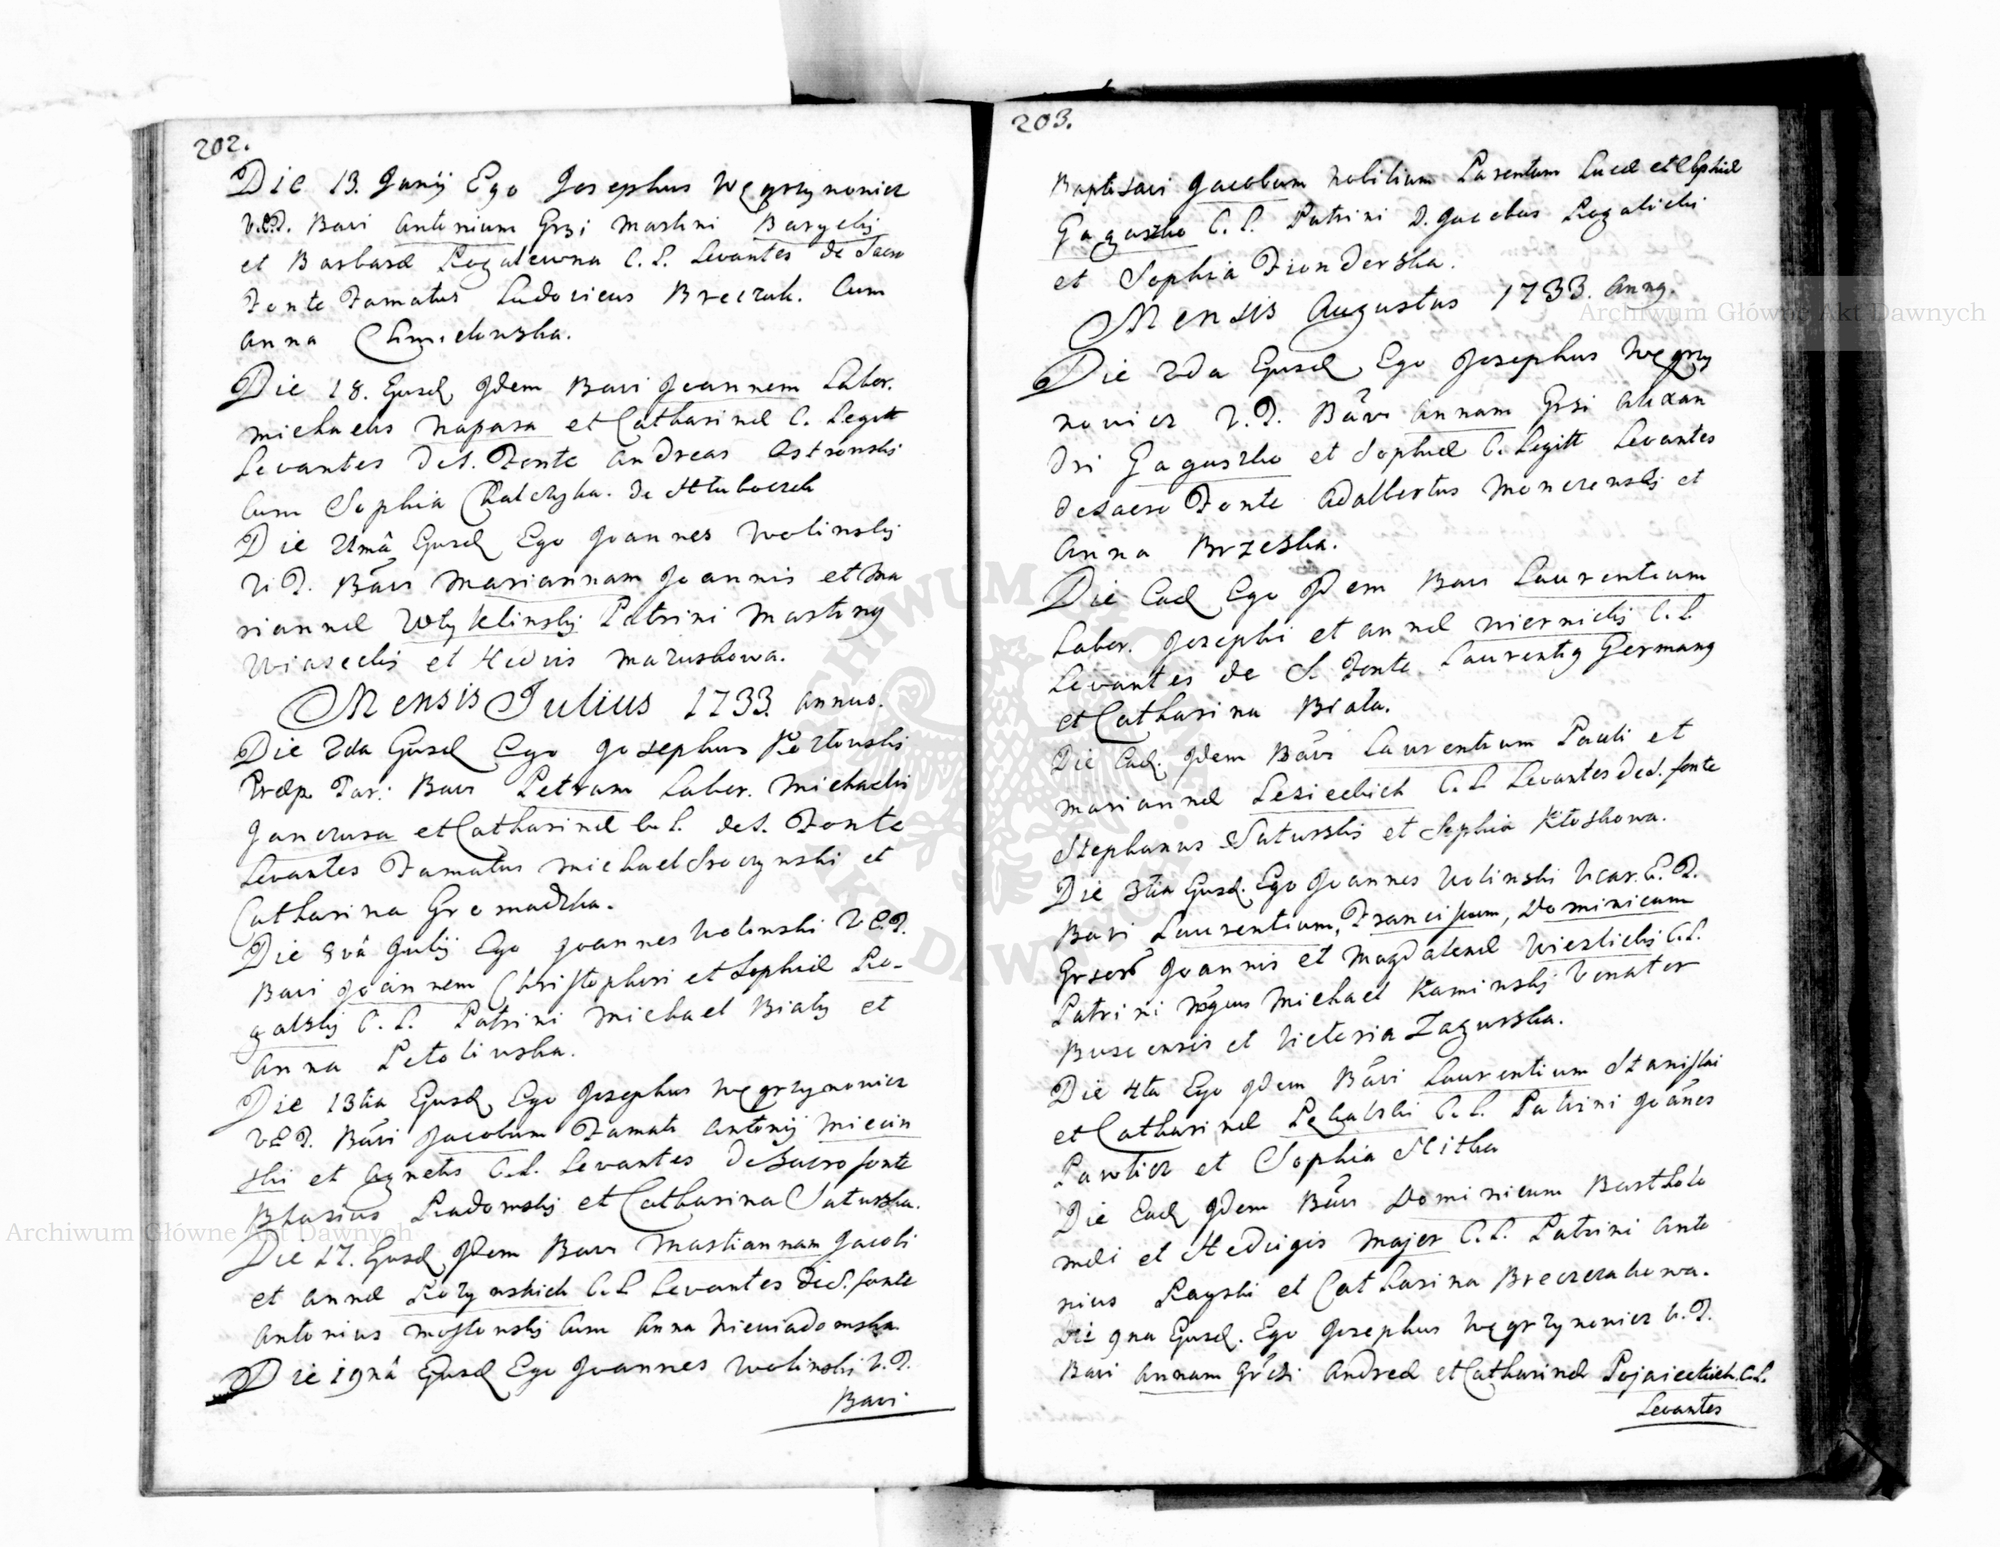 202.
Die 13. Junij Ego Josephus Węgrzynowicz
V.E.P. Bavi Antonium Grsi Martini Barycki
et Barbaræ Rogalewna C. L. Levantes de Sacro
Fonte Famatus Ludovicus Breczuk. Cum
Anna Chmielowska.
Die 18. Ejusd. Idem Bavi Joannem Labor.
Michaelis Napara et Catharinæ C. Legitt
Levantes de S. Fonte Andreas Ostrowski
Cum Sophia de
Die 21mâ Ejusd Ego Joannes Wolinskij
V. P. Bāvi Mariannam Joannis et Ma
riannæ Patrini Marting
Wiaseckij et Hedvis Maruskowa.
Mensis Julius 1733. Annus.
Die 2da Ejusd Ego Josephus Kozłowski
Præp Par: Bavi Petrum Labor. Michaelis
Janczura et Catharinæ C. L. de S. Fonte
Levantes Famatus Michael Sroczynski et
Catharina Gromadzka.
Die 8vâ Julij Ego Joannes Wolinski V.E.P.
Bavi Joannem Christophori et Sophiæ Ro-
galskij C. L. Patrini Michael Biały et
Anna Petoliuska.
Die 13tia Ejusd. Ego Josephus Węgrzynowicz
V.E.P. Bāvi Jacobum Famati Antonij Miecin
ski et Agnetis C. L. Levantes de Sacro fonte
Blasius Radomskij et Catharina Saturska.
Die 17. Ejusd. Idem Bavi Martiannam Jacobi
et Annæ Rozynskich C. L Levantes de S. fonte
Antonius Mostowskij Cum Anna Niewiadomska
Die 19nâ Ejusd Ego Joannes Wolinskij V. P.
Bavi
203.
Baptisavi Jacobum Nobilium Parentum Lucæ et Sophiæ
Gagaszko C. L. Patrini D. Jacobus Rogalicki
et Sophia Fronderska.
Mensis Augustus 1733. Anng.
Die 2da Ejusd Ego Josephus Węgrzy
nowicz V. P. Bāvi Annam Grsi Alexan
dri Gagaszko et Sophiæ C. Legitt Levantes
de Sacro Fonte Adalbertus Monczenskij et
Anna Brzeska.
Die Ead Ego Idem Bavi Laurentium
Labor. Josephi et Annæ Niernickij C. L.
Levantes de S. Fonte Laurentig Germang
et Catharina Biała.
Die Ead. Idem Bāvi Laurentium Pauli et
Mariannæ Lesieckich C. L Levantes de S. fonte
Stephanus Saturski et Sophia Kłoskowa.
Die 3tia Ejusd. Ego Joannes Wolinski Vicar. E. P.
Bavi Laurentium, Franciscum, Dominicum
Joannis et Magdalenæ Wierlickij C. L.
Patrini Mgcus Michael Kaminskij Venator
Buscensis et Victoria Zagurska.
Die 4ta Ego Idem Bāvi Laurentium Stanislai
et Catharinæ C. L. Patrini Joānes
Pawlicz et Sophia Hitka
Die Ead Idem Bāvi Dominicum Bartholo
mæi et Hedvigis Majer C. L. Patrini Anto
nius Rayski et Catharina Breczczukowa.
Die 9na Ejusd. Ego Josephus Węgrzynowicz V. P.
Bavi Annam Andreæ et Catharinæ Pojaieckich. C. L.
Levantes
Archiwum Główne Akt Dawnych
Archiwum Główne Akt Dawnych
ARCHIWUM GŁÓWNE AKT DAWNYCH